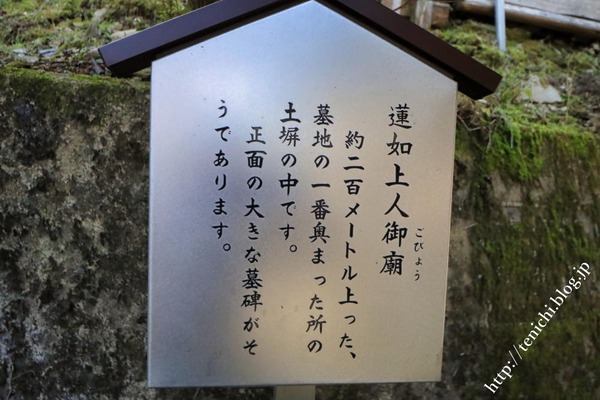 蓮如上人御廟
ごびょう
約二百メートル上った、
墓地の一番奥まった所の
土塀の中です。
正面の大きな墓碑がそ
うであります。
http://tenichi.blog.jp